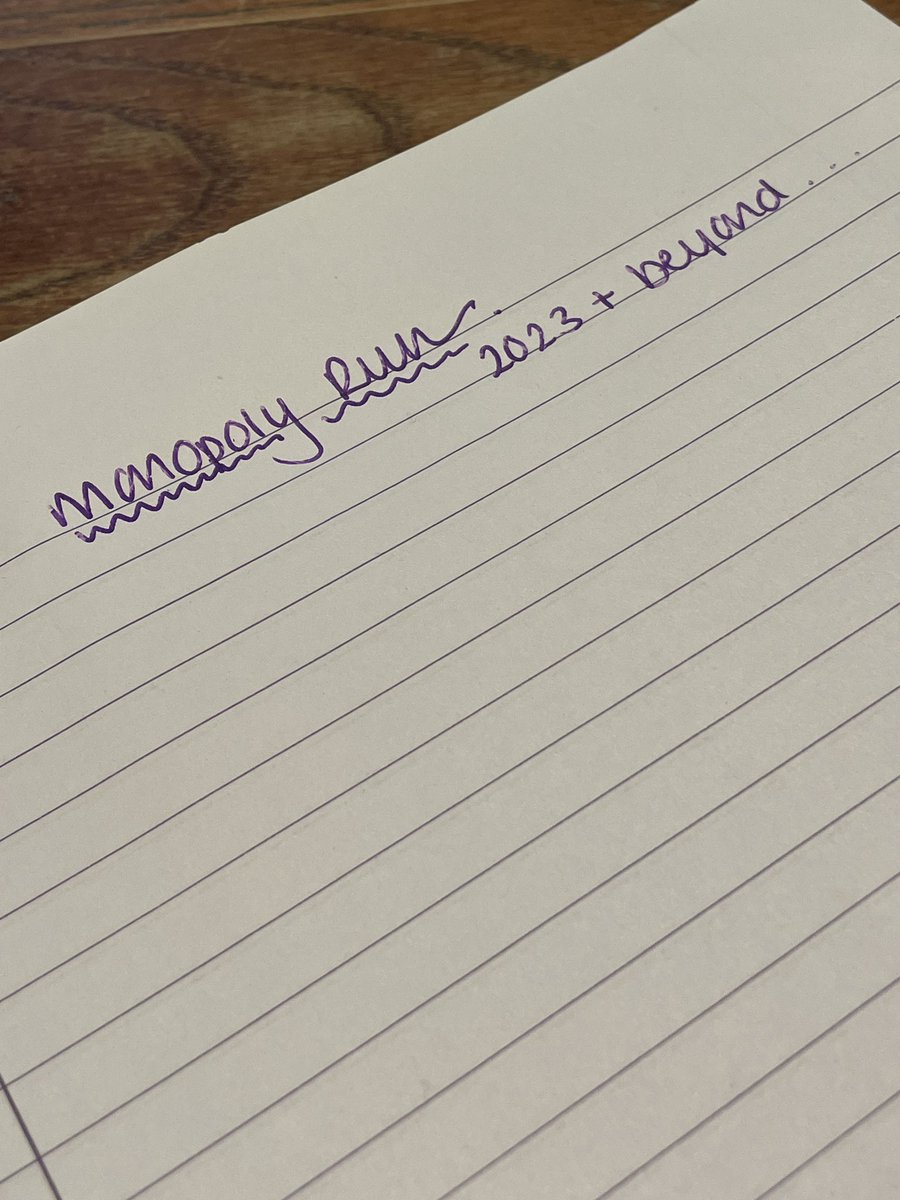 Monopoly Run.
2023 + beyond ....